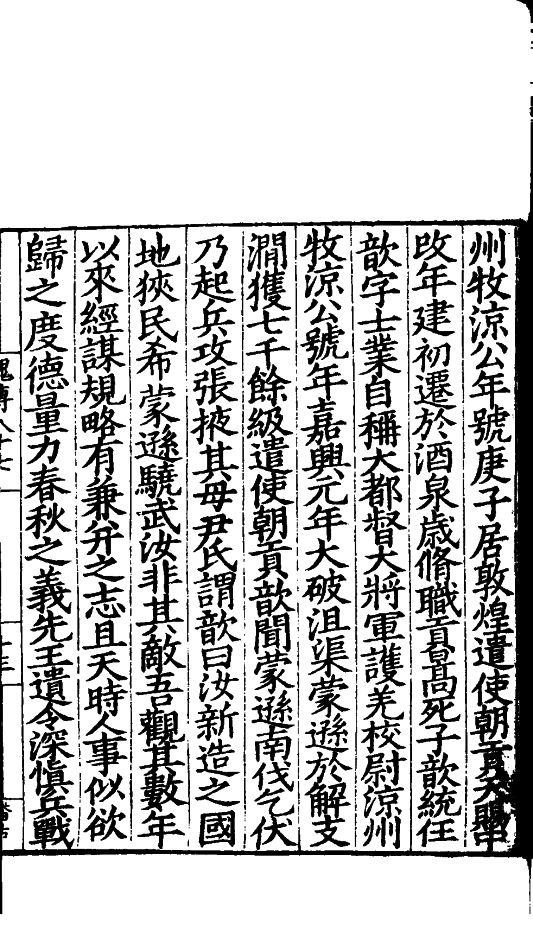 州牧涼公年號庚子居敦煌遣使朝貢天賜中
改年建初遷於酒泉歲脩職貢暠死子歆統任
歆字士業自稱大都督大將軍護羌校尉涼州
牧涼公號年嘉興元年大破沮渠蒙遜於解支
澗獲七千餘級遣使朝貢歆聞蒙遜南伐乞伏
乃起兵攻張掖其母尹氏謂歆曰汝新造之國
地狹民希蒙遜驍武汝非其敵吾觀其數年
以來經謀規略有兼并之志且天時人事似欲
歸之度德量力春秋之義先王遺令深慎兵戰
魏傳八十七
十三